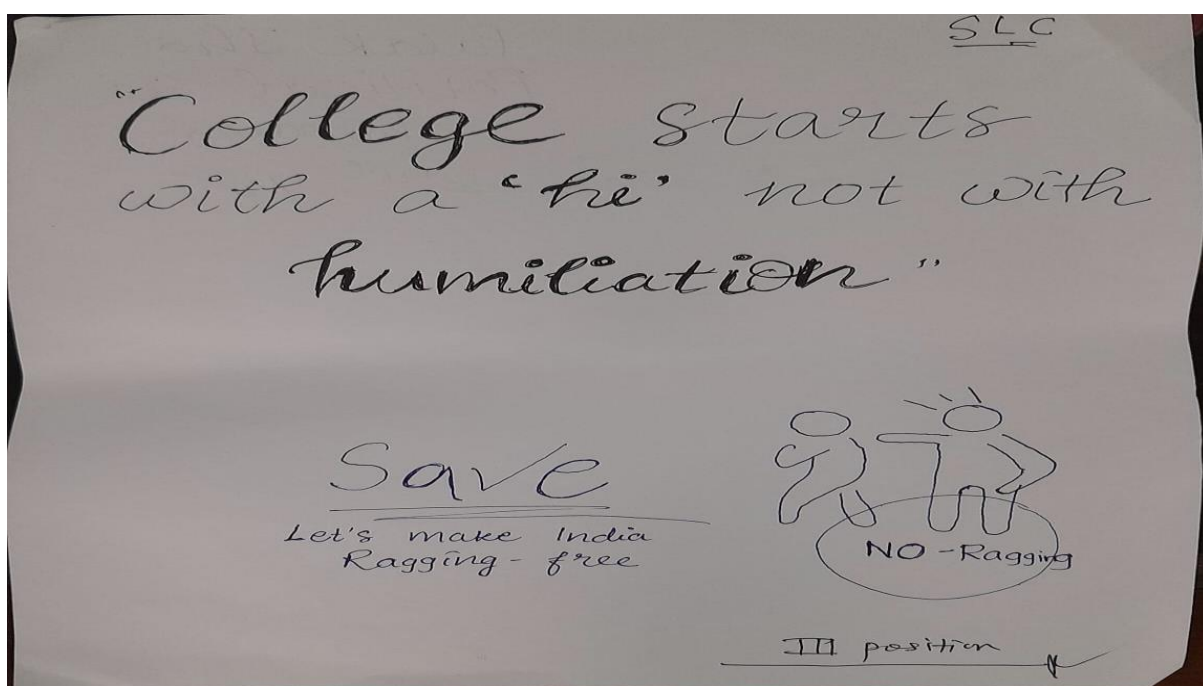 SLC
"College starts
with a 'hi' not with
humiliation"
Save
Let's make India
Ragging - free
NO - Ragging
III position